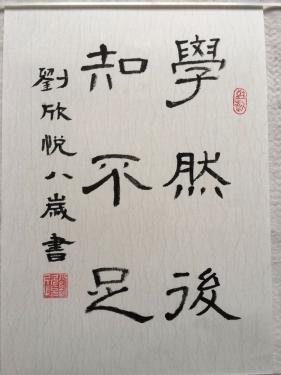 學然後
知不足
劉欣悅八歲書